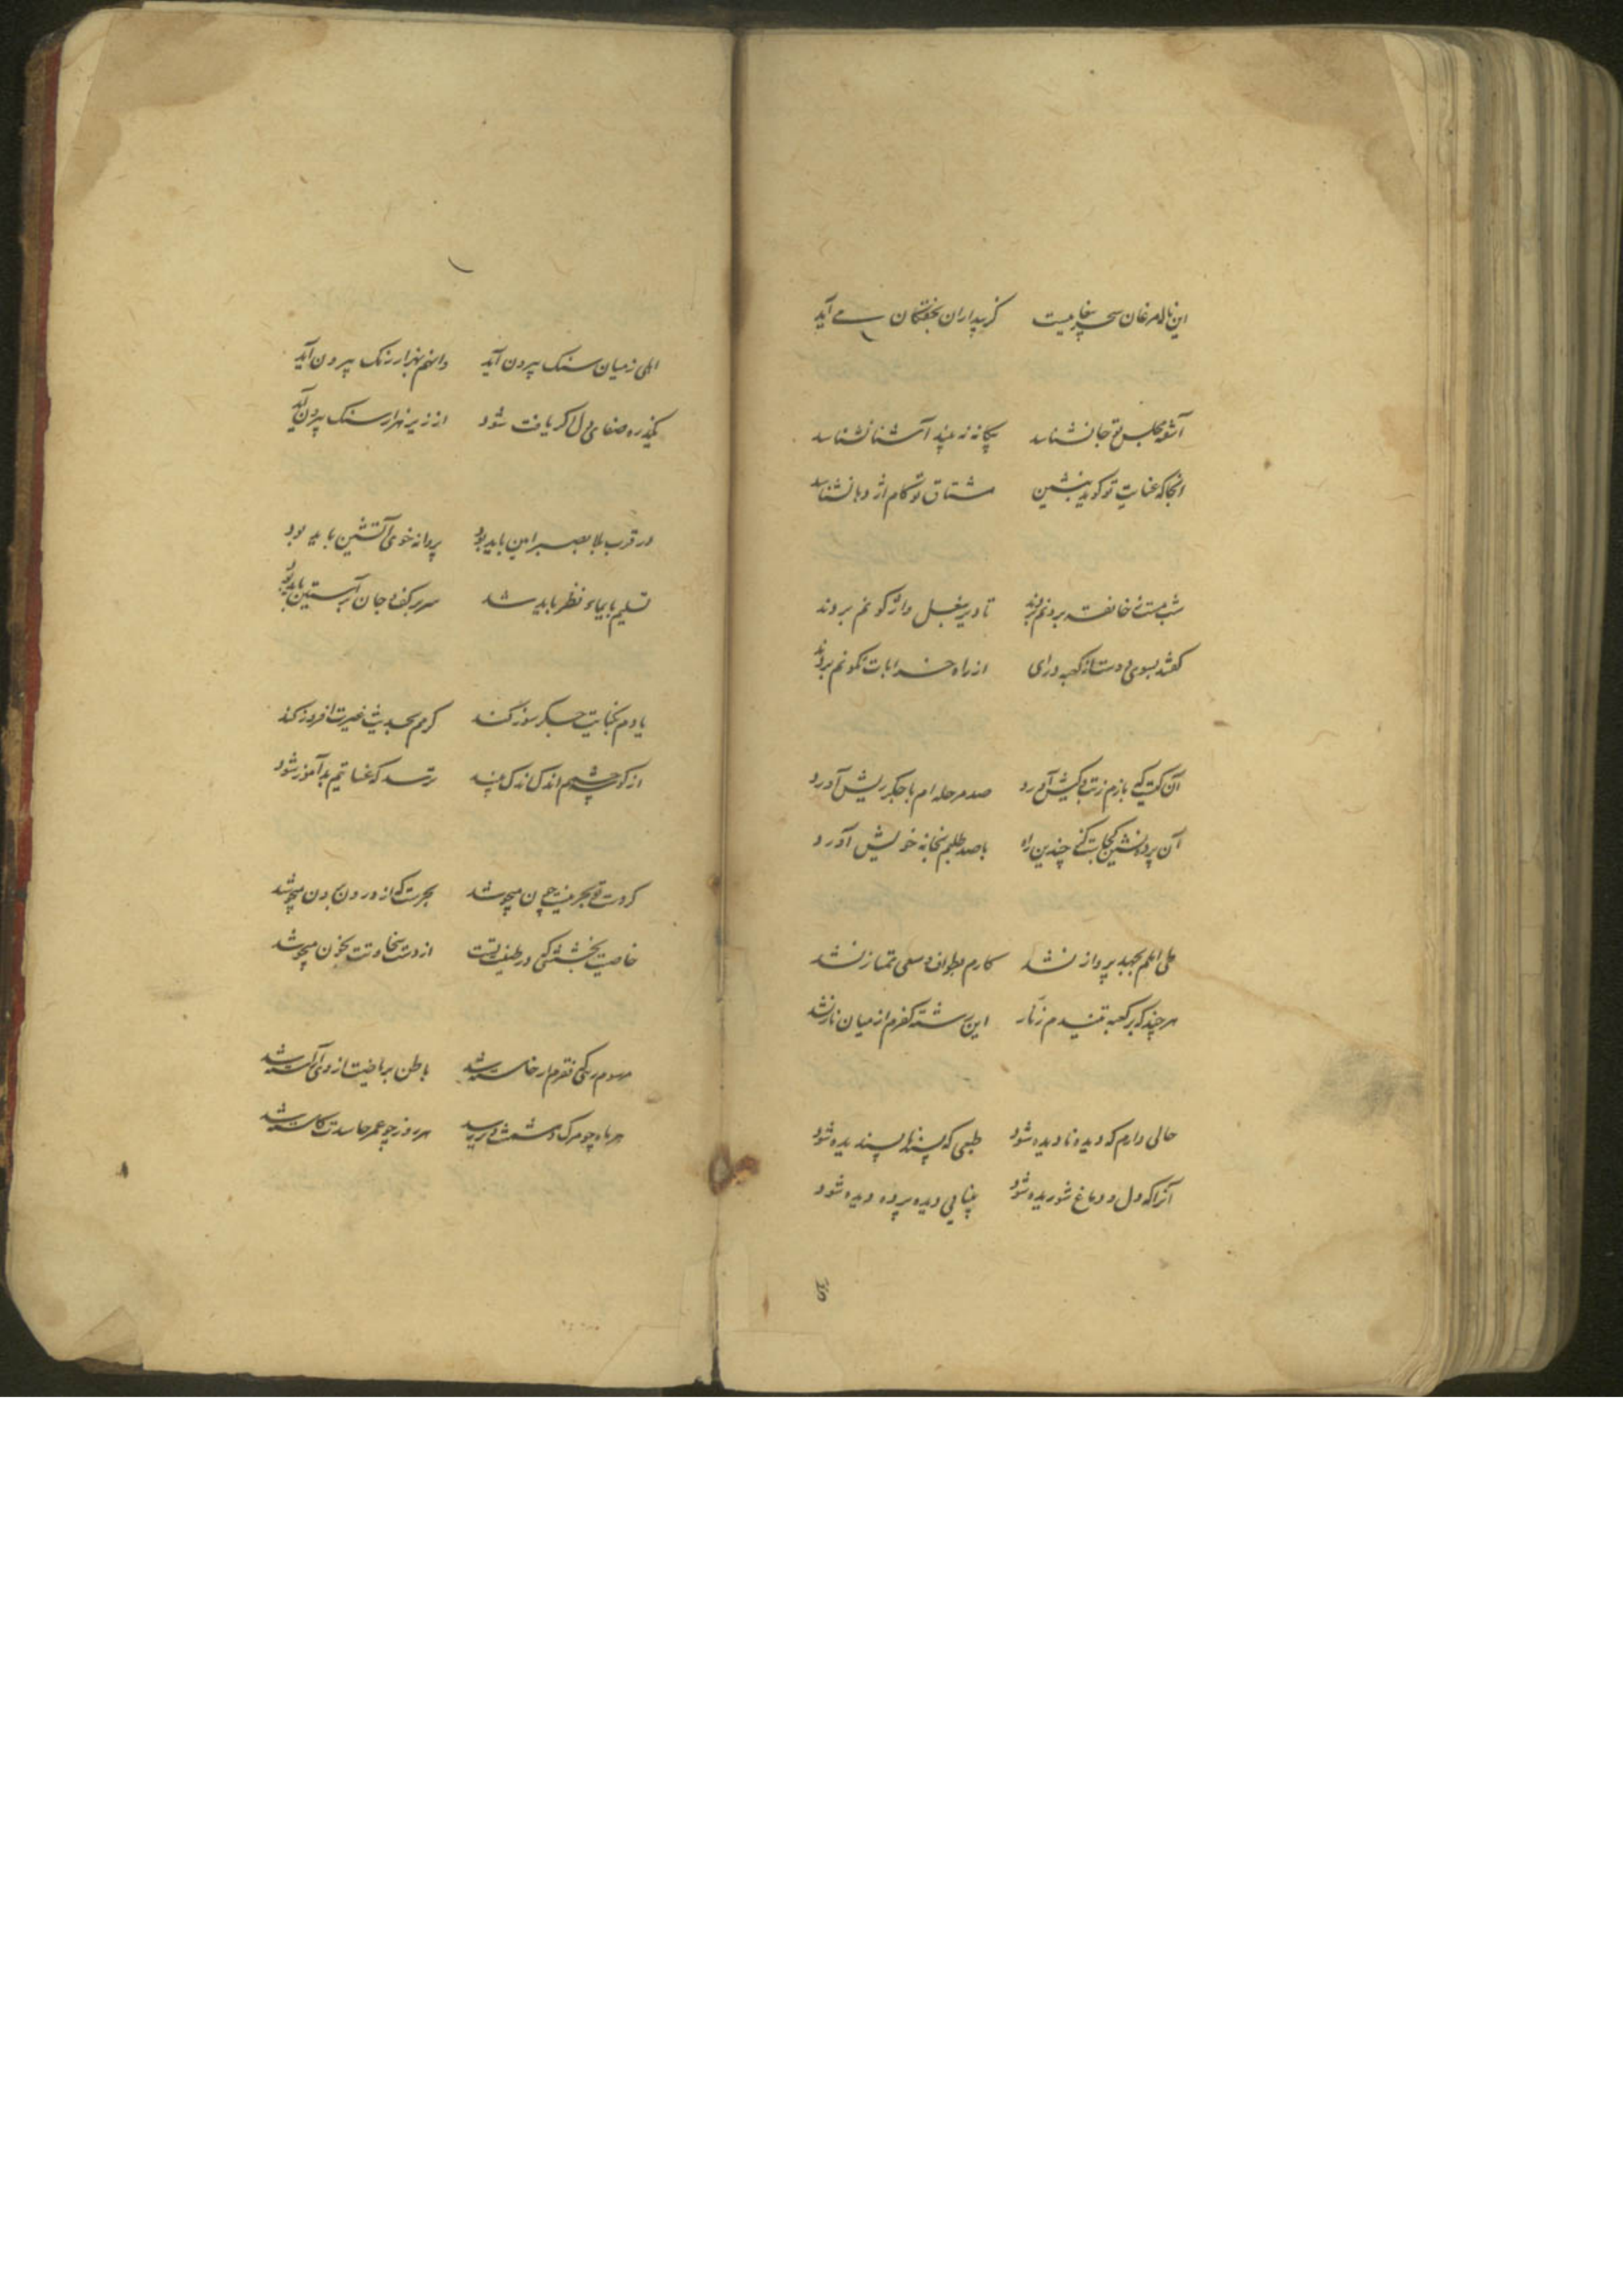 این ناله مرغان سحر پیغامیست کز بیداران بخفتگان می آید
آشفته مجلس تو جا نشناسد بیگانه نه بیند آشنا نشناسد
انجا که عنایت تو کوید بنشین مشتاق تو کام اژدها نشناسد
شب مست ز خانقه برونم بردند تا دیر بشغل واژکونم بردند
کفتند بسوی دوست از کعبه درای از راه خرابات نکونم بردند
آن کیست که بازم ز تو در کیش آورد صد مرحله ام با جکر ریش آورد
آن پرده نشین کجاست کز چندین راه با صد طلبم بخانه خویش آورد
طی املم بجهد پرواز نشد کارم بطواف و سعی ممتاز نشد
هر چند که بر کعبه تنیدم زنار این رشته کفرم از میان باز نشد
حالی دارم که دیده نادیده شود طبعی که پسند ناپسندیده شود
آنرا که دل و دماغ شوریده شود بینایی دیده پرده دیده شود
لعلی ز میان سنک بیرون آید دانم بهزار رنک بیرون آید
یکذره صفای دل اکر یافت شود از زیر هزار سنک بیرون آید
در قرب بلا بصبر امین باید بود پروانه خوی آتشین باید بود
تسلیم بایماء نظر باید شد سر بر کف و جان در آستین باید بود
یادم بحکایت جکر سوز کند کرمم بحدیث غیرت افروز کند
از کوشه چشمم اندک اندک بیند ترسد که عنایتم بدآموز شود
کر دست تو بحر نیست چون میجوشد بحریست که از درون برون میجوشد
خاصیت بخششی که در طینت تست از دست سخاوتت بخون میجوشد
مرسوم رکی فقرم ار خاسته شد باطن بریاضیت از وی آراسته شد
هر ماه چو مرک دشمنت دیر رسید هر روز چو عمر حاسدت کاسته شد